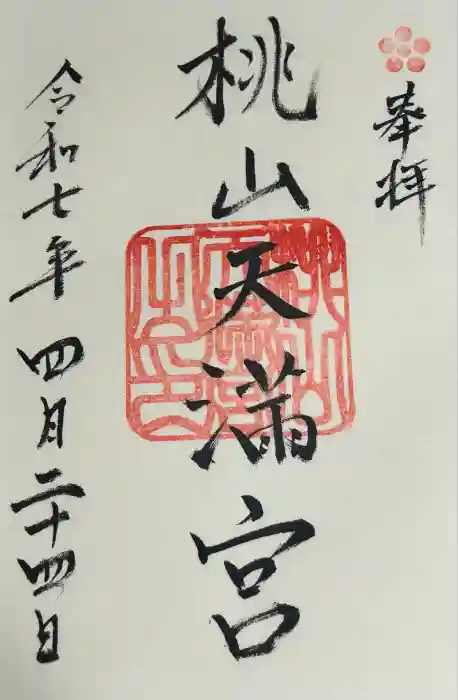 奉拝
桃山天満宮
令和七年四月二十四日